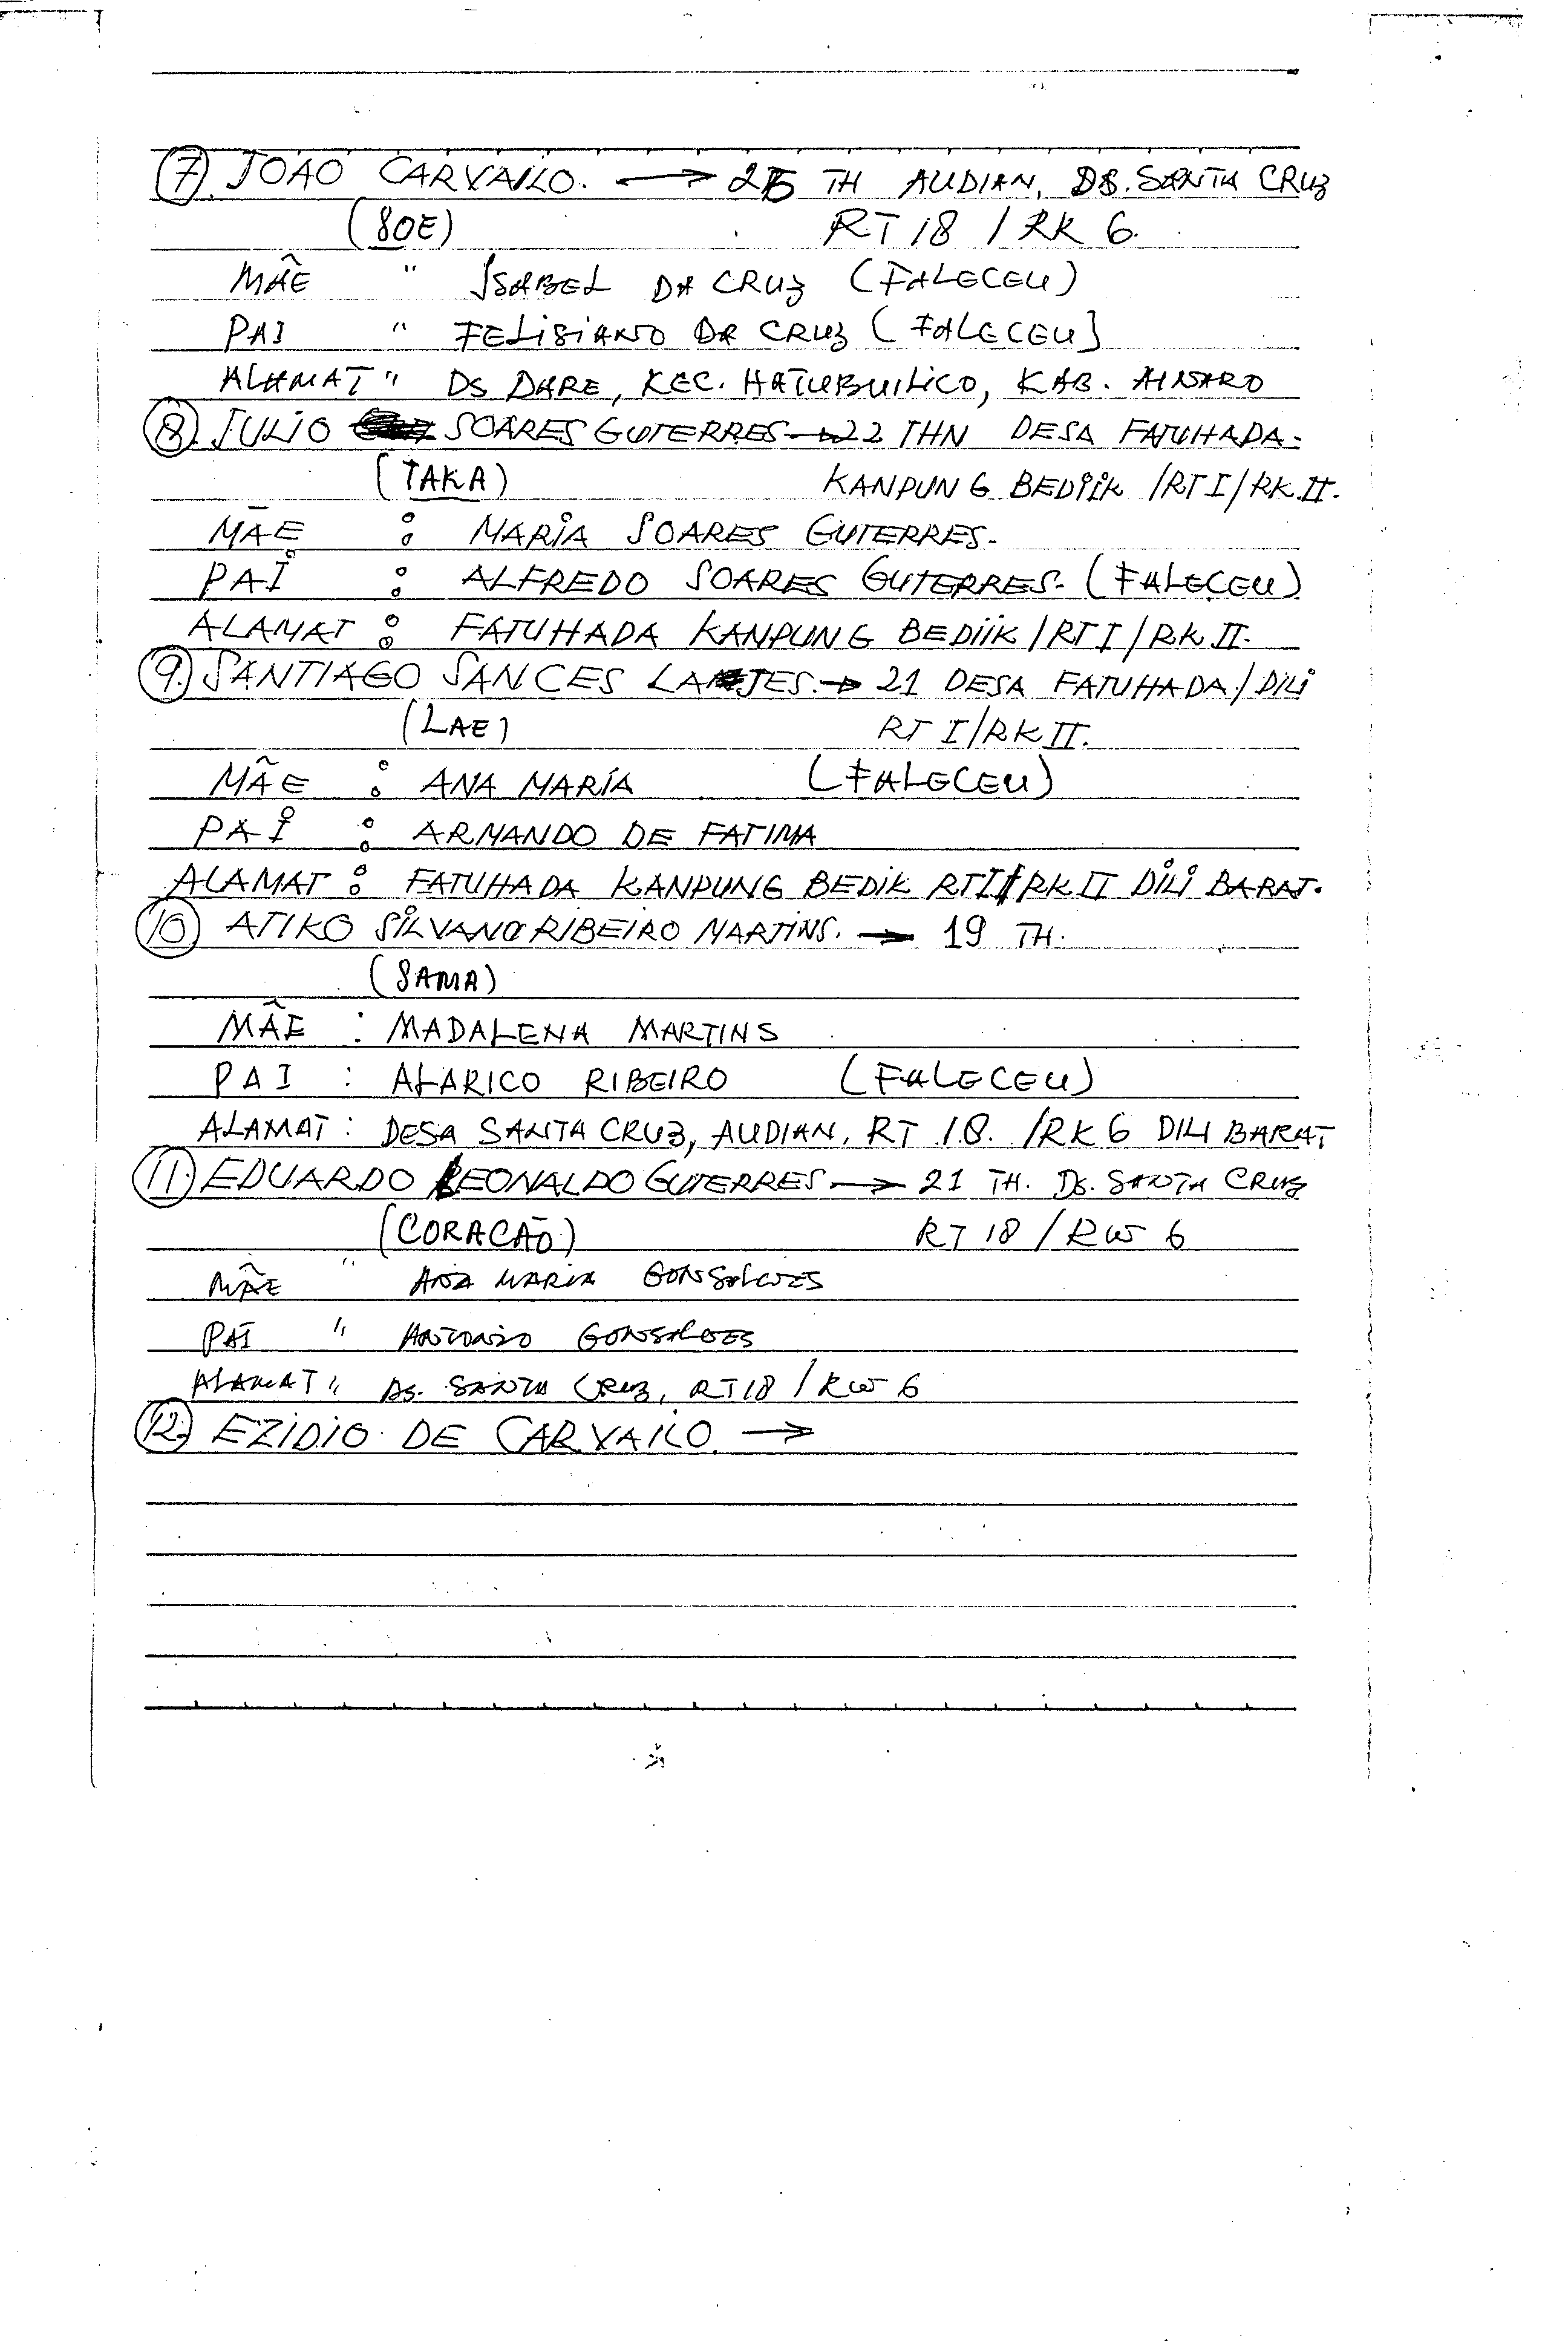 7. JOAO CARVAILO. → 25 TH AUDIAN, DS. SANTA CRUZ
(SOE) RT 18 / RK 6.
MÃE " ISABEL DA CRUZ (FALECEU)
PAI " FELISIANO DA CRUZ (FALECEU)
ALAMAT " DS DARE, KEC. HATUBUILICO, KAB. AINARO
8. JULIO SOARES GUTERRES → 22 THN DESA FATUHADA.
(TAKA) KANPUNG BEDIIK /RT I/RK.II.
MÃE : MARIA SOARES GUTERRES.
PAI : ALFREDO SOARES GUTERRES. (FALECEU)
ALAMAT : FATUHADA KANPUNG BEDIIK /RT I/RK II.
9. SANTIAGO SANCES → 21 DESA FATUHADA/DILI
(LAE) RT I/RK II.
MÃE : ANA MARÍA (FALECEU)
PAI : ARMANDO DE FATIMA
ALAMAT : FATUHADA KANPUNG BEDIK RT I/RK II DILI BARAT.
10 ATIKO SILVANO RIBEIRO MARTINS. → 19 TH.
(SAMA)
MÃE : MADALENA MARTINS
PAI : ALARICO RIBEIRO (FALECEU)
ALAMAT : DESA SANTA CRUZ, AUDIAN, RT 18. /RK 6 DILI BARAT
11. EDUARDO LEONALDO GUTERRES → 21 TH. DS. SANTA CRUZ
(CORACÃO) RT 18 / RW 6
MÃE " ANA MARIA GONSALVES
PAI " ANTONIO GONSALVES
ALAMAT " DS. SANTA CRUZ, RT 18 / RW 6
12. EZIDIO DE CARVAILO. →